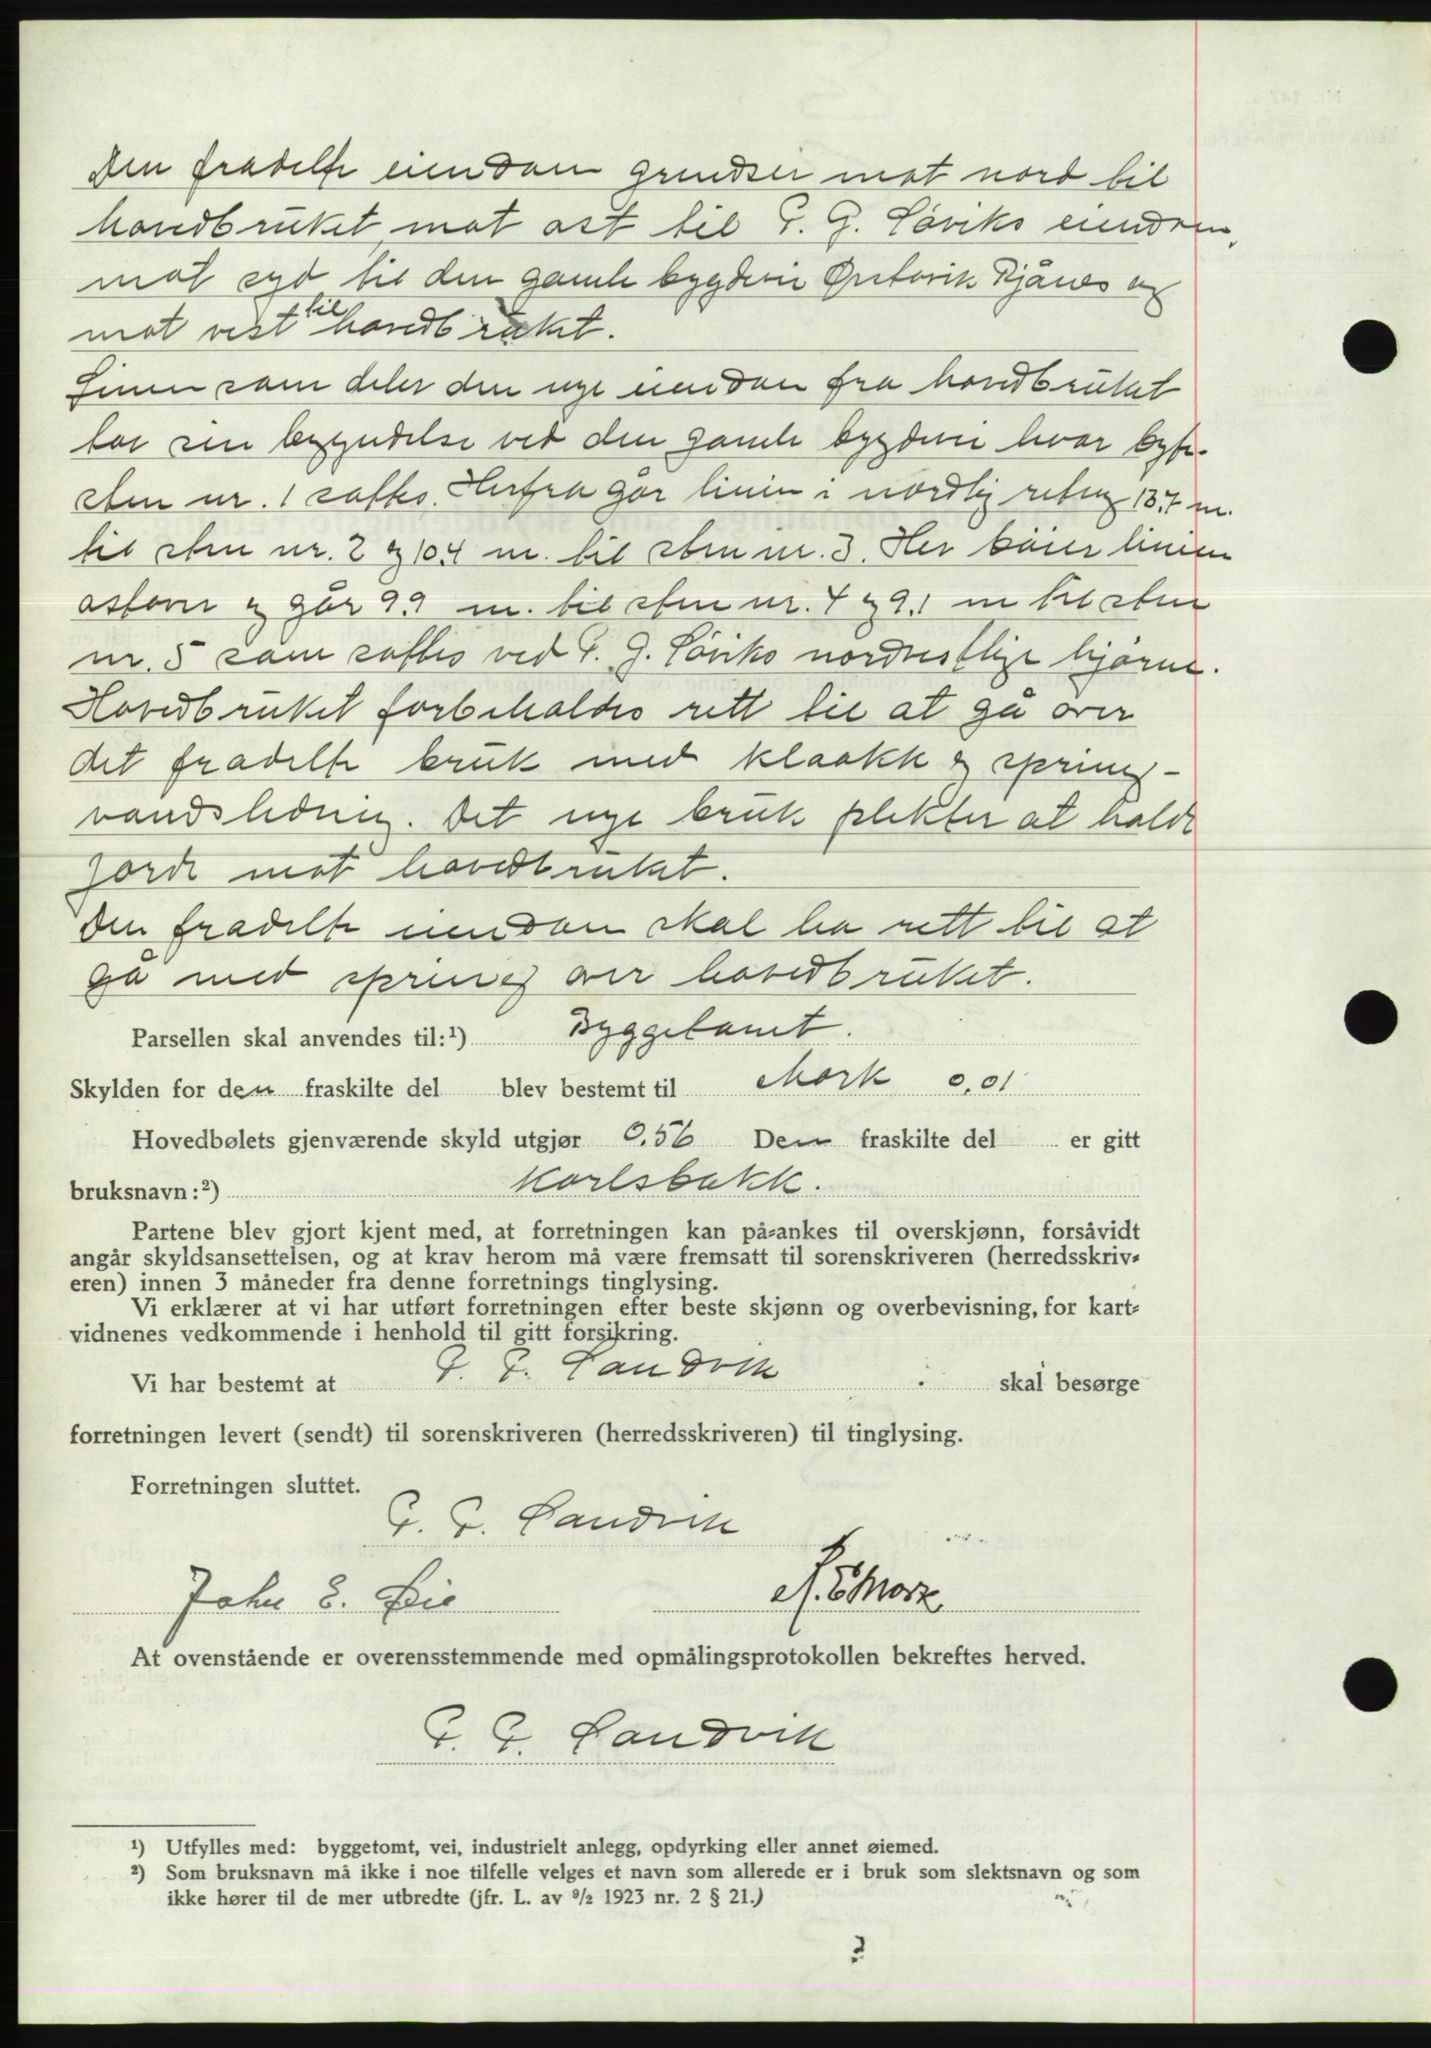 Den fradelte eiendom grendser mot nord til
hovedbruket, mot ost til P. G. Søviks eiendom,
mot syd til den gamle bygdevei Ørstavik Rjånes og
mot vest til hovedbruket.
Linien som deler den nye eiendom fra hovedbruket
tar sin begyndelse ved den gamle bygdevei hvor byte-
sten nr. 1 sattes. Herfra går linien i nordlig retng 13,7 m.
til sten nr. 2 og 10,4 m. til sten nr. 3. Her böier linien
ostover og går 9,9 m. til sten nr. 4 og 9,1 m til sten
nr. 5 som sattes ved P. G. Søviks nordvestlige hjørne.
Hovedbruket forbeholdes rett til at gå over
det fradelte bruk med kloakk og spring-
vandsledning. Det nye bruk plikter at holde
gjorde mot hovedbruket.
Den fradelte eiendom skal ha rett til at
gå med spring over hovedbruket.
Parsellen skal anvendes til:¹) Byggetomt.
Skylden for den fraskilte del blev bestemt til Mark 0,01
Hovedbølets gjenværende skyld utgjør 0,56 Den fraskilte del er gitt
bruksnavn:²) Karlsbakk.
Partene blev gjort kjent med, at forretningen kan på-ankes til overskjønn, forsåvidt
angår skyldsansettelsen, og at krav herom må være fremsatt til sorenskriveren (herredsskriv-
eren) innen 3 måneder fra denne forretnings tinglysing.
Vi erklærer at vi har utført forretningen efter beste skjønn og overbevisning, for kart-
vidnenes vedkommende i henhold til gitt forsikring.
Vi har bestemt at P. P. Sandvik skal besørge
forretningen levert (sendt) til sorenskriveren (herredsskriveren) til tinglysing.
Forretningen sluttet.
P. P. Sandvik
John E. Øie E Mork
At ovenstående er overensstemmende med opmålingsprotokollen bekreftes herved.
P. P. Sandvik
¹) Utfylles med: byggetomt, vei, industrielt anlegg, opdyrking eller annet øiemed.
²) Som bruksnavn må ikke i noe tilfelle velges et navn som allerede er i bruk som slektsnavn og som
ikke hører til de mer utbredte (jfr. L. av 9/2 1923 nr. 2 § 21.)